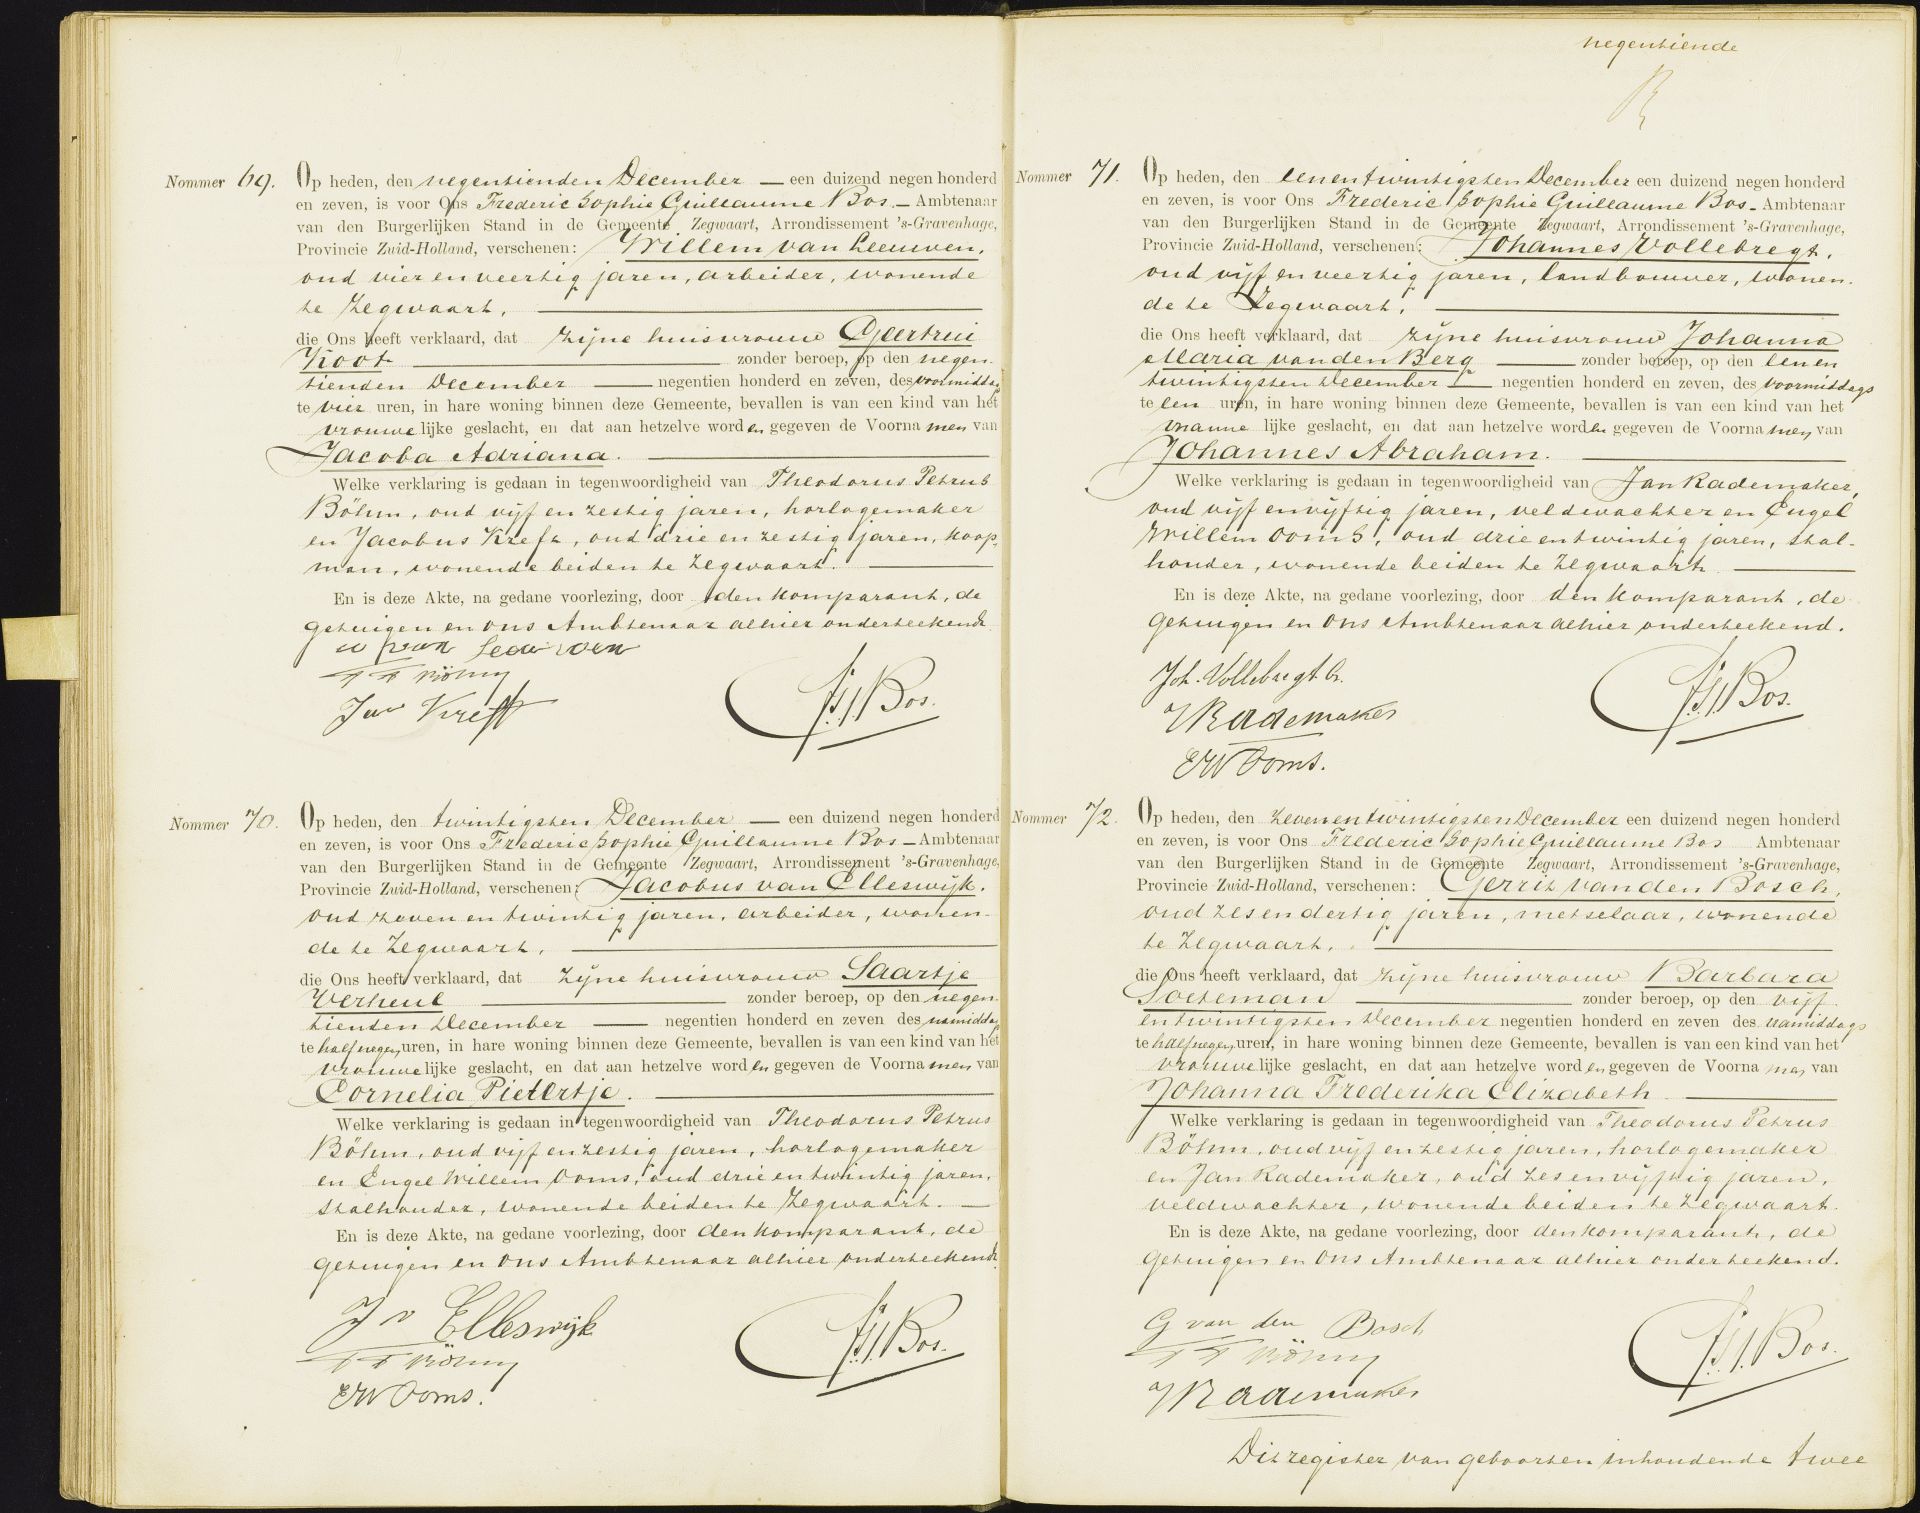 Nommer 69. Op heden, den negentienden December — een duizend negen honderd
en zeven, is voor Ons Frederic Sophie Guillaume Bos — Ambtenaar
van den Burgerlijken Stand in de Gemeente Zegwaart, Arrondissement 's-Gravenhage,
Provincie Zuid-Holland, verschenen: Willem van Leeuwen,
oud vier en veertig jaren, arbeider, wonende
te Zegwaart.
die Ons heeft verklaard, dat zijne huisvrouw Geertrui
Koot zonder beroep, op den negen
tienden December — negentien honderd en zeven, des voormiddag
te vier uren, in hare woning binnen deze Gemeente, bevallen is van een kind van het
vrouwelijke geslacht, en dat aan hetzelve worden gegeven de Voornamen van
Jacoba Adriana.
Welke verklaring is gedaan in tegenwoordigheid van Theodorus Petrus
Böhm, oud vijf en zestig jaren, horlogemaker
en Jacobus Kreft, oud drie en zestig jaren, koop-
man, wonende beiden te Zegwaart.
En is deze Akte, na gedane voorlezing, door den komparant, de
getuigen en ons Ambtenaar alhier onderteekend.
W van Leeuwen
T P Böhm
Jac Kreft
F.S.G. Bos.
Nommer 70. Op heden, den twintigsten December — een duizend negen honderd
en zeven, is voor Ons Frederic Sophie Guillaume Bos — Ambtenaar
van den Burgerlijken Stand in de Gemeente Zegwaart, Arrondissement 's-Gravenhage,
Provincie Zuid-Holland, verschenen: Jacobus van Elleswijk.
oud zeven en twintig jaren, arbeider, wonen-
de te Zegwaart.
die Ons heeft verklaard, dat zijne huisvrouw Saartje
Verheul zonder beroep, op den negen
tienden December — negentien honderd en zeven des namiddag
te half negen uren, in hare woning binnen deze Gemeente, bevallen is van een kind van het
vrouwelijke geslacht, en dat aan hetzelve worden gegeven de Voornamen van
Cornelia Pietertje.
Welke verklaring is gedaan in tegenwoordigheid van Theodorus Petrus
Böhm, oud vijf en zestig jaren, horlogemaker
en Engel Willem Ooms, oud drie en twintig jaren,
stalhouder, wonende beiden te Zegwaart.
En is deze Akte, na gedane voorlezing, door den komparant, de
getuigen en ons Ambtenaar alhier onderteekend.
J v Elleswijk
T P Böhm
EW Ooms.
F.S.G. Bos.
negentiende
Nommer 71. Op heden, den eenentwintigsten December een duizend negen honderd
en zeven, is voor Ons Frederic Sophie Guillaume Bos — Ambtenaar
van den Burgerlijken Stand in de Gemeente Zegwaart, Arrondissement 's-Gravenhage,
Provincie Zuid-Holland, verschenen: Johannes Vollebregt.
oud vijf en veertig jaren, landbouwer, wonen.
de te Zegwaart.
die Ons heeft verklaard, dat zijne huisvrouw Johanna
Maria van den Berg zonder beroep, op den eenen
twintigsten December — negentien honderd en zeven, des voormiddags
te een uren, in hare woning binnen deze Gemeente, bevallen is van een kind van het
mannelijke geslacht, en dat aan hetzelve worden gegeven de Voornamen van
Johannes Abraham.
Welke verklaring is gedaan in tegenwoordigheid van Jan Rademaker,
oud vijf en vijftig jaren, veldwachter en Engel
Willem Ooms, oud drie en twintig jaren, stal-
houder, wonende beiden te Zegwaart
En is deze Akte, na gedane voorlezing, door den komparant, de
getuigen en Ons Ambtenaar alhier onderteekend.
Joh. Vollebregt
J Rademaker
EW Ooms.
F.S.G. Bos.
Nommer 72. Op heden, den zevenentwintigsten December een duizend negen honderd
en zeven, is voor Ons Frederic Sophie Guillaume Bos Ambtenaar
van den Burgerlijken Stand in de Gemeente Zegwaart, Arrondissement 's-Gravenhage,
Provincie Zuid-Holland, verschenen: Gerrit van den Bosch,
oud zes en dertig jaren, metselaar, wonende
te Zegwaart.
die Ons heeft verklaard, dat zijne huisvrouw Barbara
Soeteman zonder beroep, op den vijf
en twintigsten December negentien honderd en zeven des namiddags
te half negen uren, in hare woning binnen deze Gemeente, bevallen is van een kind van het
vrouwelijke geslacht, en dat aan hetzelve worden gegeven de Voornamen van
Johanna Frederika Elizabeth
Welke verklaring is gedaan in tegenwoordigheid van Theodorus Petrus
Böhm, oud vijf en zestig jaren, horlogemaker
en Jan Rademaker, oud zes en vijftig jaren,
veldwachter, wonende beiden te Zegwaart.
En is deze Akte, na gedane voorlezing, door den komparant, de
getuigen en Ons Ambtenaar alhier onderteekend.
G van den Bosch
T P Böhm
J Rademaker
F.S.G. Bos.
Dit register van geboorten inhoudende twee